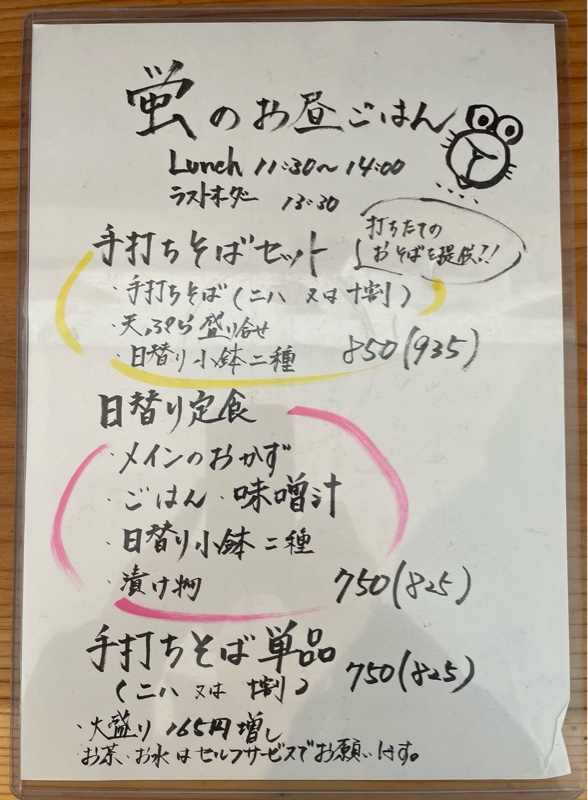 蛍のお昼ごはん
Lunch 11:30〜14:00
ラストオーダー 13:30
打ちたての
おそばを提供!!
手打ちそばセット
・手打ちそば(二八 又は 十割)
・天ぷら盛り合せ
・日替り小鉢二種 850(935)
日替り定食
・メインのおかず
・ごはん・味噌汁
・日替り小鉢二種
・漬け物 750(825)
手打ちそば単品 750(825)
(二八 又は 十割)
・大盛り 165円増し
お茶・お水はセルフサービスでお願いします。